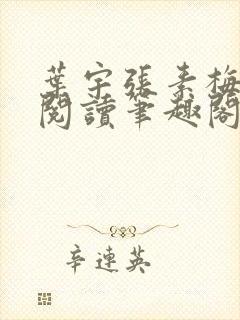 葉宇張素梅
閱讀筆趣閣
辛連英